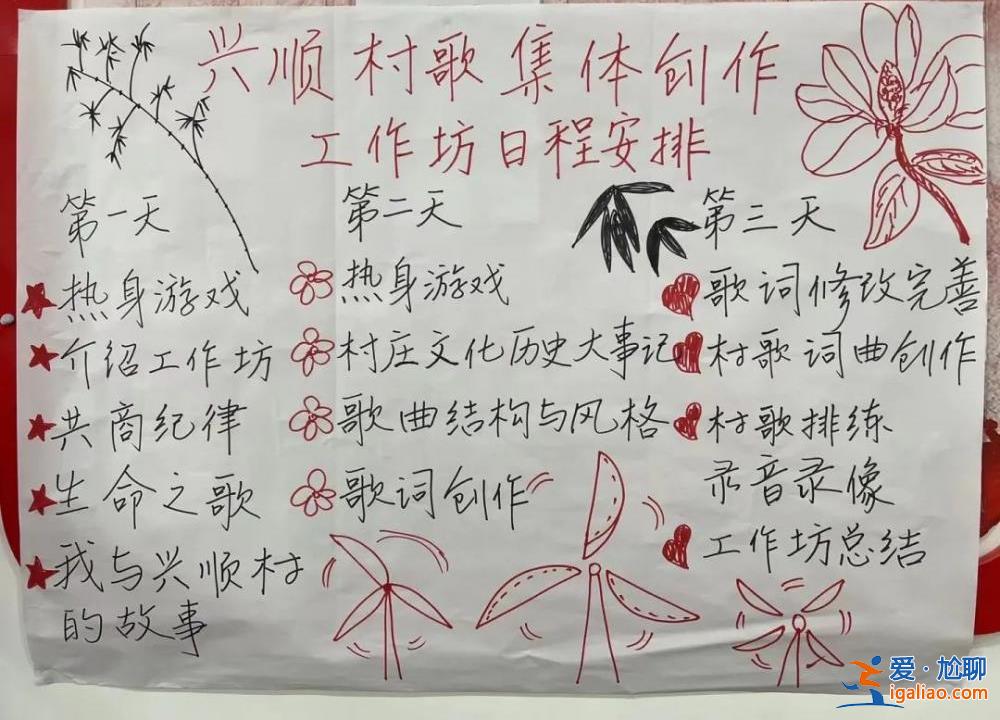 兴顺村歌集体创作
工作坊日程安排
第一天
热身游戏
介绍工作坊
共商纪律
生命之歌
我与兴顺村
的故事
第二天
热身游戏
村庄文化历史大事记
歌曲结构与风格
歌词创作
第三天
歌词修改完善
村歌词曲创作
村歌排练
录音录像
工作坊总结
爱·尬聊
igaliao.com